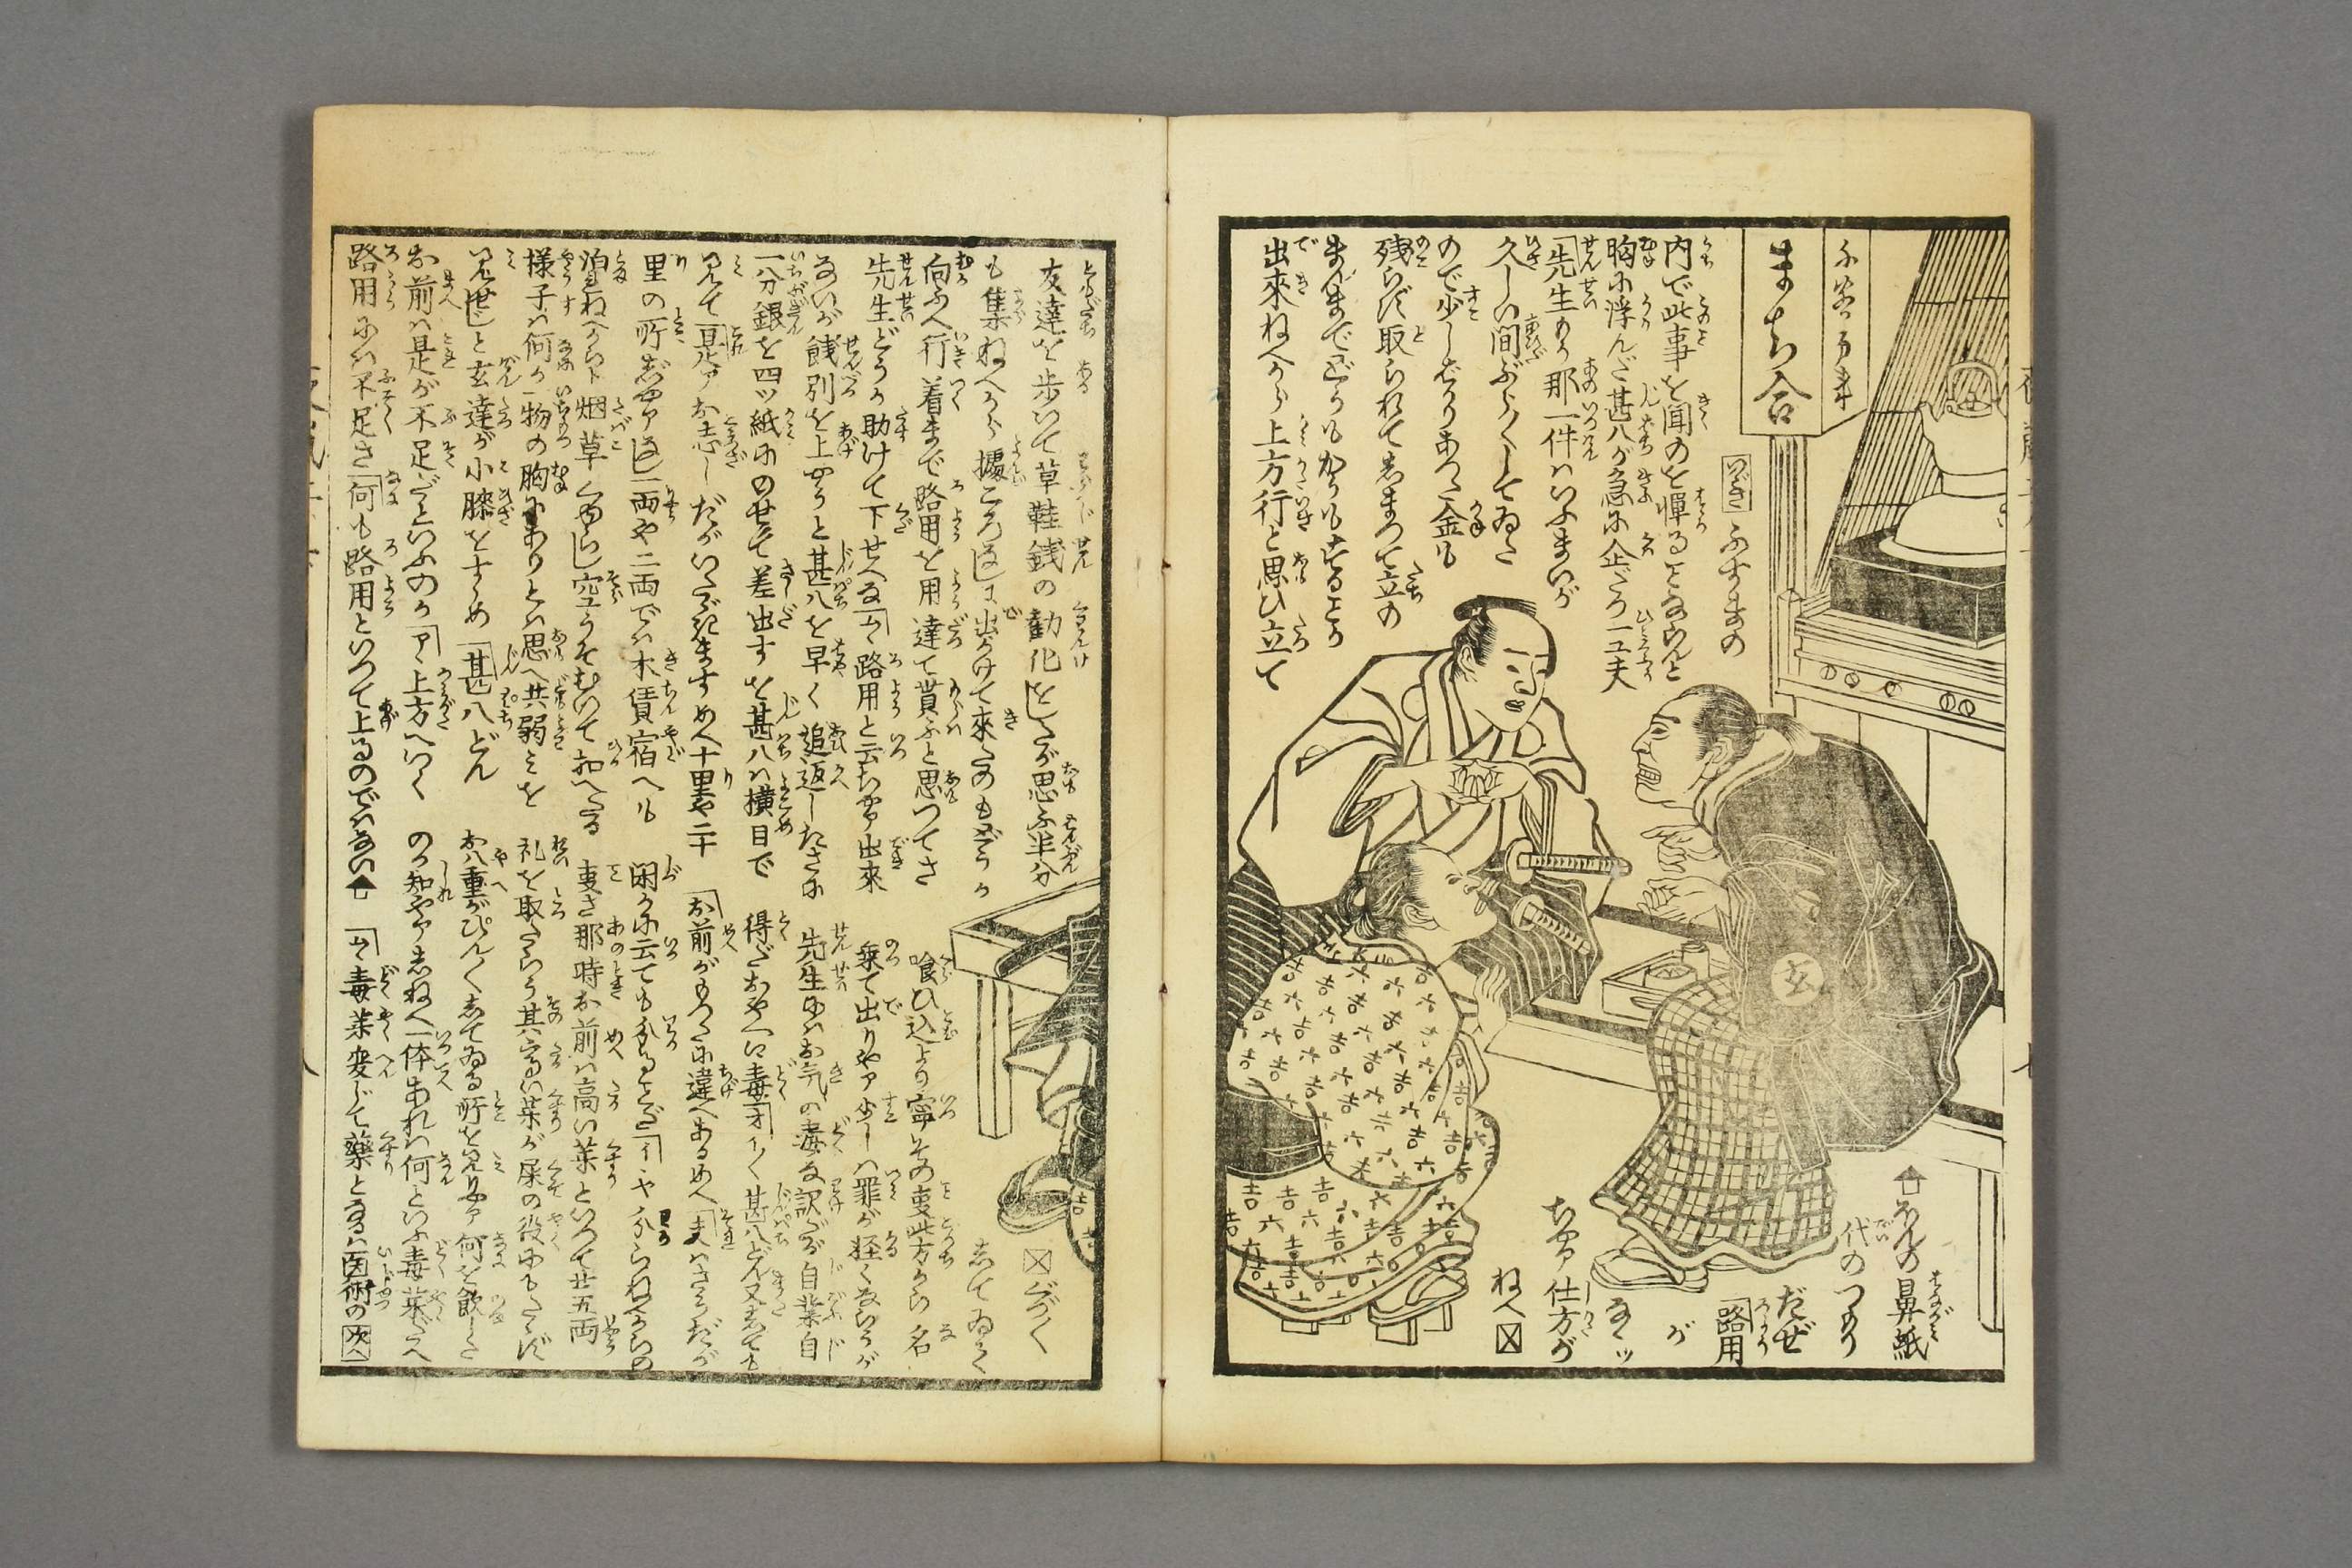 まち合
つゞき
ふすまの
内で此事を聞のを憚ることならんと
胸に浮んだ甚八が急に企だつ一工夫
「先生もう那一件はいふまいが
久しい間ぶら〳〵してゐた
ので少しばかりあつた金も
残らず取られてしまつて立の
まんまでどうもかうもすることが
出來ねへから上方行と思ひ立て
ほんの鼻紙
代のつもり
だぜ
「路用
が
なくツ
ちやア仕方が
ねへ
友達を歩いて草鞋銭の勧化をしたが思ふ半分
も集ねへから據ころなしに出かけて來たのもどうか
向ふへ行着まで路用を用達て貰ふと思つてさ
先生どうか助けて下せへな「ム丶路用と云ちやア出來
ないが餞別を上やうと甚八を早く追返したさに
一分銀を四ツ紙にのせて差出すを甚八は横目で
見て「是アお志しだがいたゞきますめへ十里や二十
里の所じやアなし一両や二両では木賃宿へも
泊れねへからト烟草くゆらし空うそむいて扣へたる
様子は何か一物の胸にありとは思へ共弱みを
見せじと玄達が小膝をすゝめ「甚八どん
お前は是が不足だといふのか「アヽ上方へいく
路用には不足さ「何も路用といつて上るのではない
ぐづ〳〵
してゐて
喰ひ込より寧その事此方から名
乗て出りやア少しは罪が軽くならうが
先生にはお気の毒な訳だが自業自
得だおやへい毒「オイ〳〵甚八どん又しても
「お前がもつたに違へあるめへ「夫はさうだが
閑かに云ても分ることだ「イヤ分らねへからの
事さ那時お前は高い薬といつて廿五両
礼を取たらう其高い薬が屎の役にもたゝず
お八重がぴん〳〵してゐる所を見りやア何を飲した
のか知やアしねへ一体あれは何といふ毒薬だへ
「ム丶毒薬変じて薬となるは医術の
次へ